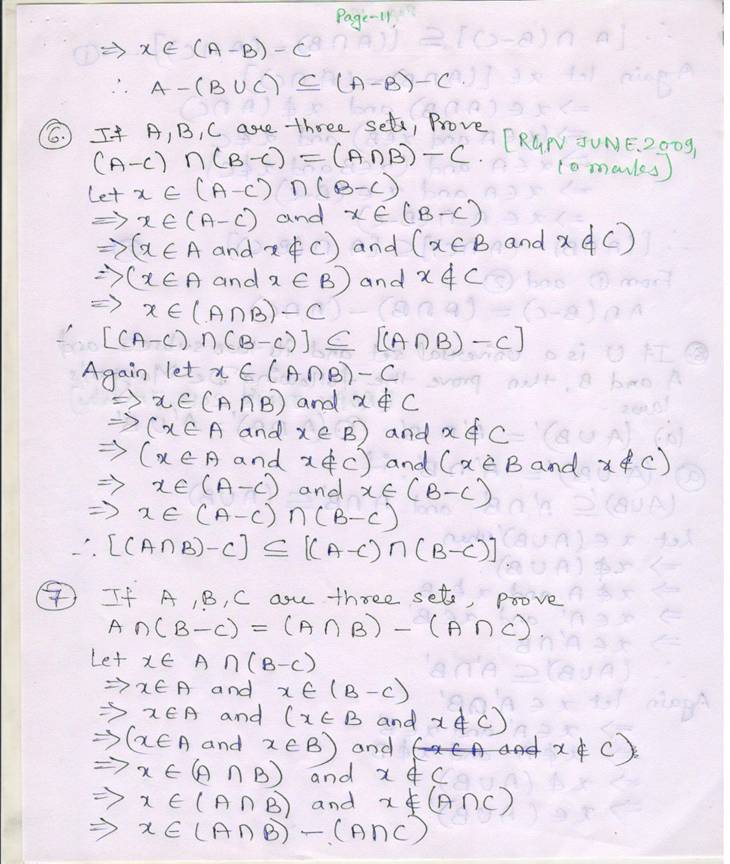 Page-11
⇒ x ∈ (A-B) - C
∴ A - (B ∪ C) ⊆ (A-B) - C.
6. If A, B, C are three sets, Prove
(A-C) ∩ (B-C) = (A∩B) - C. [RGPV JUNE.2009,
10 marks]
Let x ∈ (A-C) ∩ (B-C)
⇒ x ∈ (A-C) and x ∈ (B-C)
⇒ (x ∈ A and x ∉ C) and (x ∈ B and x ∉ C)
⇒ (x ∈ A and x ∈ B) and x ∉ C
⇒ x ∈ (A∩B) - C
∴ [(A-C) ∩ (B-C)] ⊆ [(A∩B) - C]
Again let x ∈ (A∩B) - C
⇒ x ∈ (A∩B) and x ∉ C
⇒ (x ∈ A and x ∈ B) and x ∉ C
⇒ (x ∈ A and x ∉ C) and (x ∈ B and x ∉ C)
⇒ x ∈ (A-C) and x ∈ (B-C)
⇒ x ∈ (A-C) ∩ (B-C)
∴ [(A∩B) - C] ⊆ [(A-C) ∩ (B-C)].
7 If A, B, C are three sets, prove
A∩(B-C) = (A∩B) - (A∩C).
Let x ∈ A ∩ (B-C)
⇒ x ∈ A and x ∈ (B-C)
⇒ x ∈ A and (x ∈ B and x ∉ C)
⇒ (x ∈ A and x ∈ B) and (x ∈ A and x ∉ C)
⇒ x ∈ (A ∩ B) and x ∉ C
⇒ x ∈ (A∩B) and x ∉ (A∩C)
⇒ x ∈ (A∩B) - (A∩C)